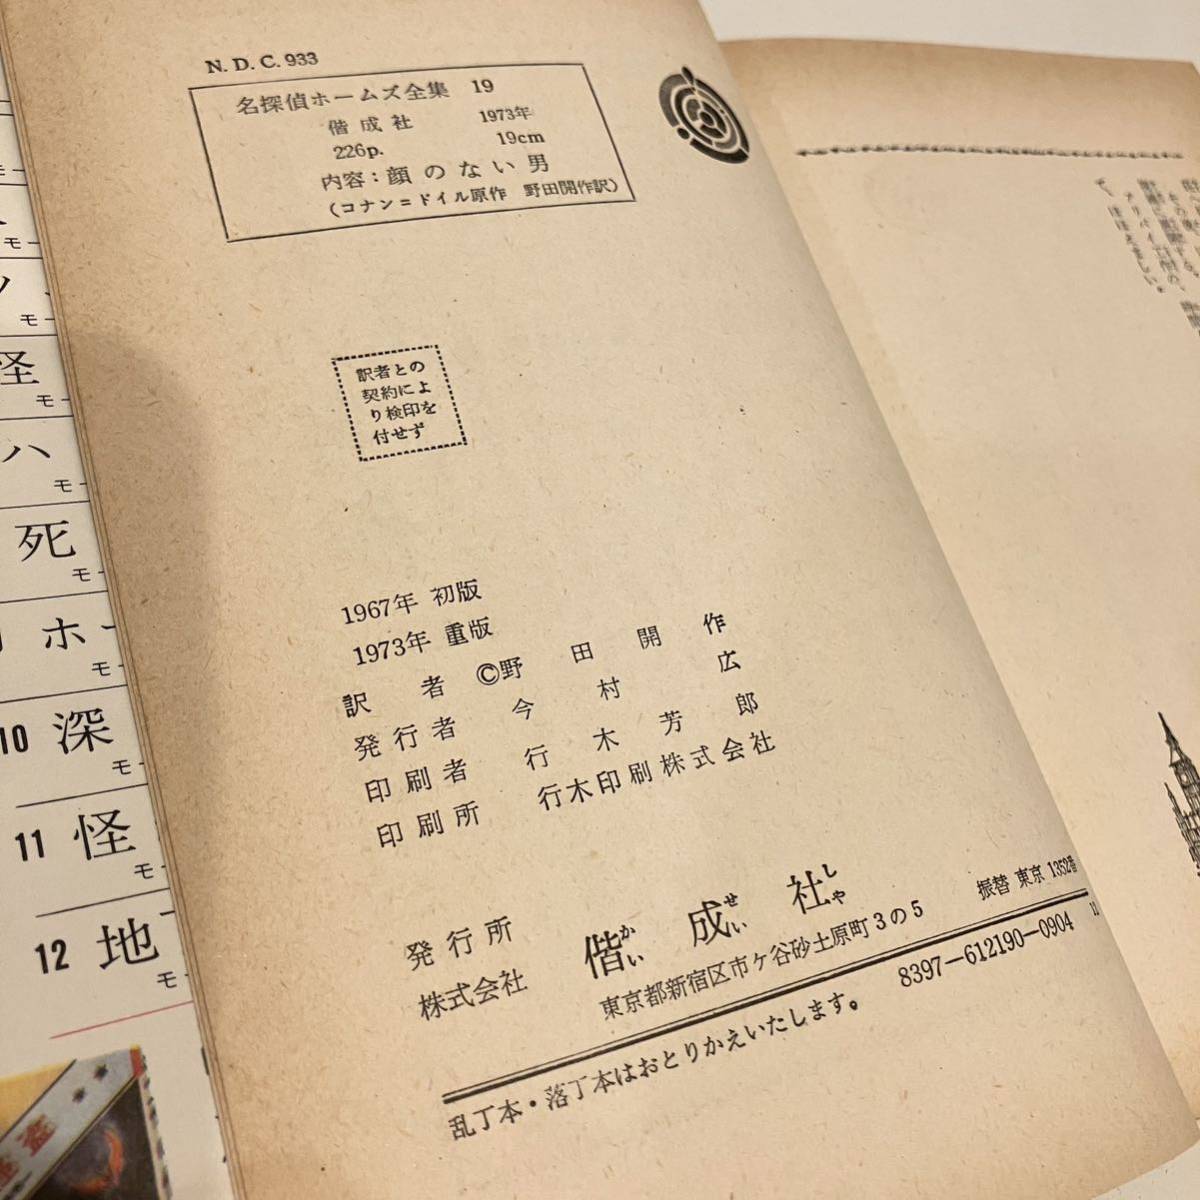 N. D. C. 933
名探偵ホームズ全集 19
偕成社 1973年
226p. 19cm
内容：顔のない男
（コナン＝ドイル原作 野田開作訳）
訳者との
契約によ
り検印を
付せず
1967年 初版
1973年 重版
訳者 ©野田開作
発行者 今村広
印刷者 行木芳郎
印刷所 行木印刷株式会社
発行所
株式会社 偕成社
かい せい しゃ
振替 東京 1352番
東京都新宿区市ケ谷砂土原町3の5
8397—612190—0904
11
乱丁本・落丁本はおとりかえいたします。
モー
怪
モー
ハ
モー
死
モー
ホー
モー
10 深
モー
11 怪
モー
12 地
モー
盗
アリバイ
で、ほほえましい。